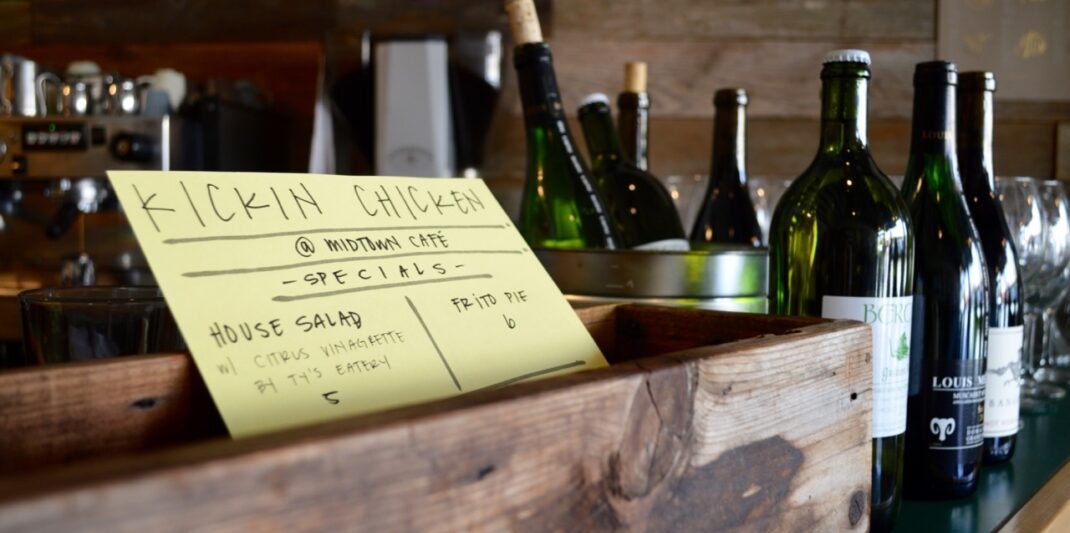 KICKIN CHICKEN
@ MIDTOWN CAFÉ
- SPECIALS -
HOUSE SALAD
w/ CITRUS VINAGRETTE
BY TY'S EATERY
5
FRITO PIE
6
LOUIS
LOUIS